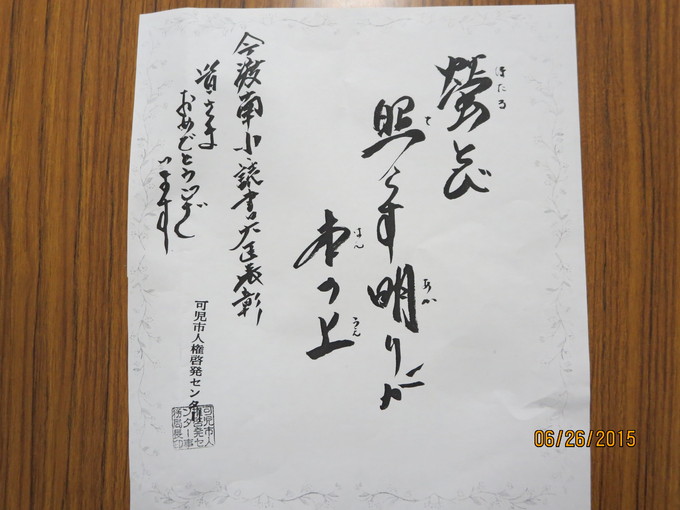 螢とび
ほたる
照らす明りが
て
あか
本の上
ほん
うえ
今渡南小読書大臣表彰
皆さま
おめでとうござ
います
可児市人権啓発センター
可児市人
権啓発セ
ンター事
務局長印
06/26/2015